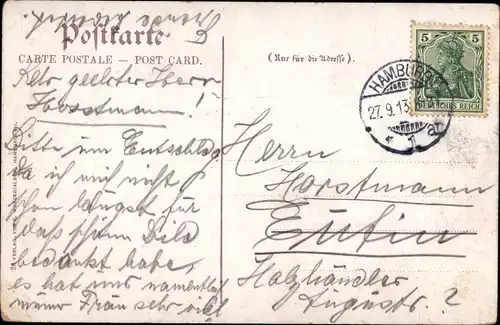 Postkarte
CARTE POSTALE — POST CARD.
(Nur für die Adresse).
5 5
DEUTSCHES REICH
HAMBURG
27.9.13
* 1 a
geehrter Herr
Horstmann!
Bitte um Entschldg.
da ich mich nicht
schon längst für
das schöne Bild
bedankt habe,
es hat uns namentlich
meine Frau sehr viel
Herrn
Horstmann
Eutin
Holzhändler
Auguststr. 2